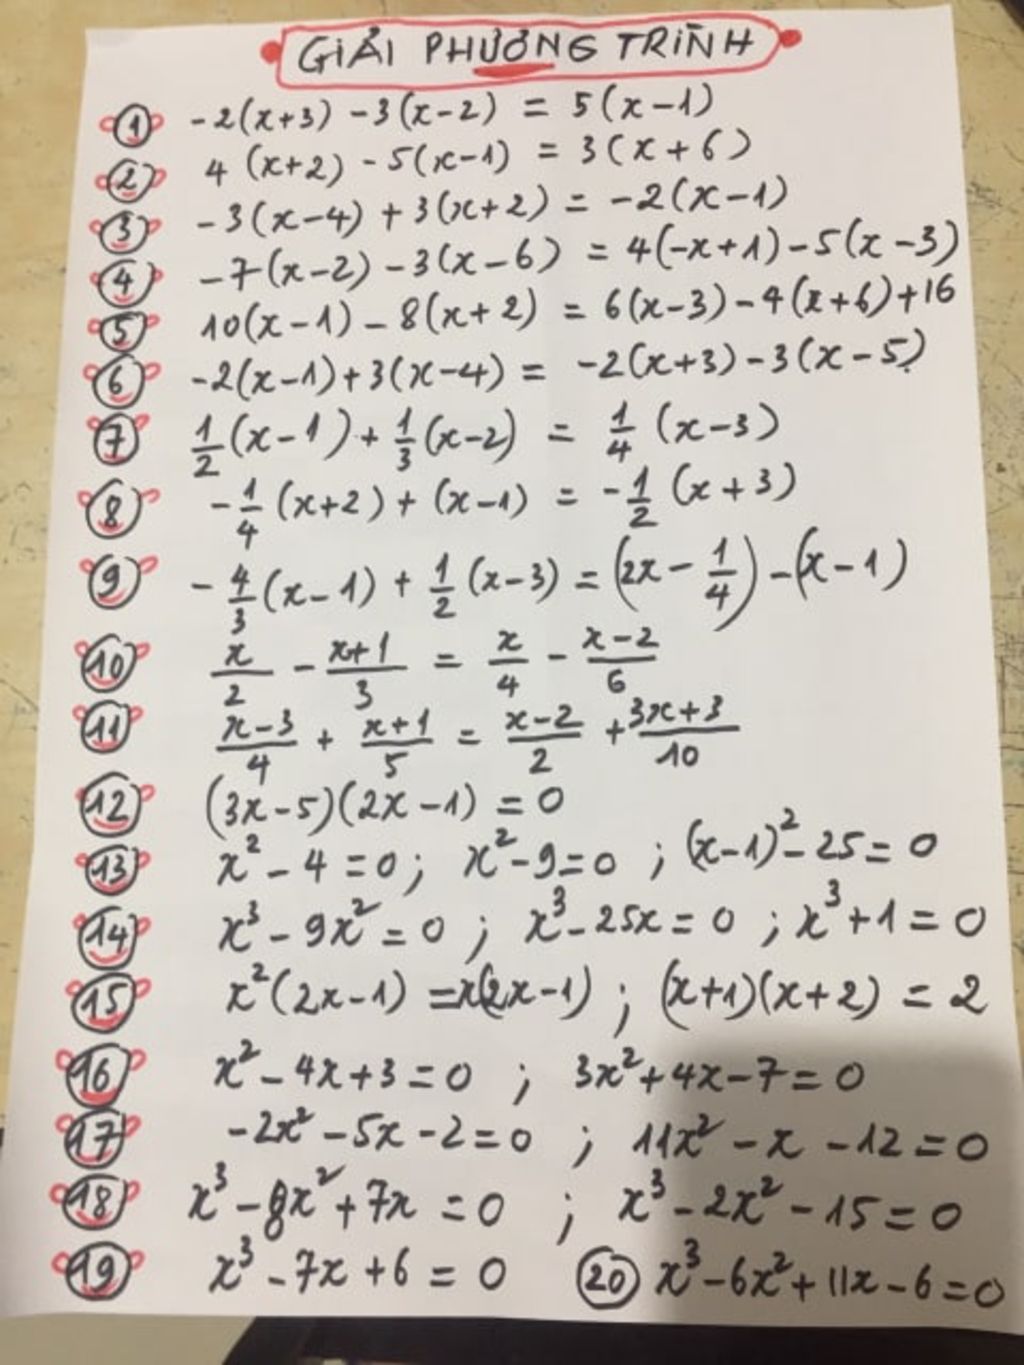 GIẢI PHƯƠNG TRÌNH
① -2(x+3) -3(x-2) = 5(x-1)
② 4(x+2) - 5(x-1) = 3(x+6)
③ -3(x-4) + 3(x+2) = -2(x-1)
④ -7(x-2) -3(x-6) = 4(-x+1) -5(x-3)
⑤ 10(x-1) - 8(x+2) = 6(x-3) -4(x+6)+16
⑥ -2(x-1)+3(x-4) = -2(x+3) -3(x-5)
⑦ 1/2 (x-1) + 1/3 (x-2) = 1/4 (x-3)
⑧ -1/4 (x+2) + (x-1) = -1/2 (x+3)
⑨ -4/3 (x-1) + 1/2 (x-3) = (2x - 1/4) - (x-1)
⑩ x/2 - (x+1)/3 = x/4 - (x-2)/6
⑪ (x-3)/4 + (x+1)/5 = (x-2)/2 + (3x+3)/10
⑫ (3x-5)(2x-1) = 0
⑬ x² - 4 = 0 ; x² - 9 = 0 ; (x-1)² - 25 = 0
⑭ x³ - 9x² = 0 ; x³ - 25x = 0 ; x³ + 1 = 0
⑮ x²(2x-1) = x(2x-1) ; (x+1)(x+2) = 2
⑯ x² - 4x + 3 = 0 ; 3x² + 4x - 7 = 0
⑰ -2x² - 5x - 2 = 0 ; 11x² - x - 12 = 0
⑱ x³ - 8x² + 7x = 0 ; x³ - 2x² - 15 = 0
⑲ x³ - 7x + 6 = 0 ⑳ x³ - 6x² + 11x - 6 = 0